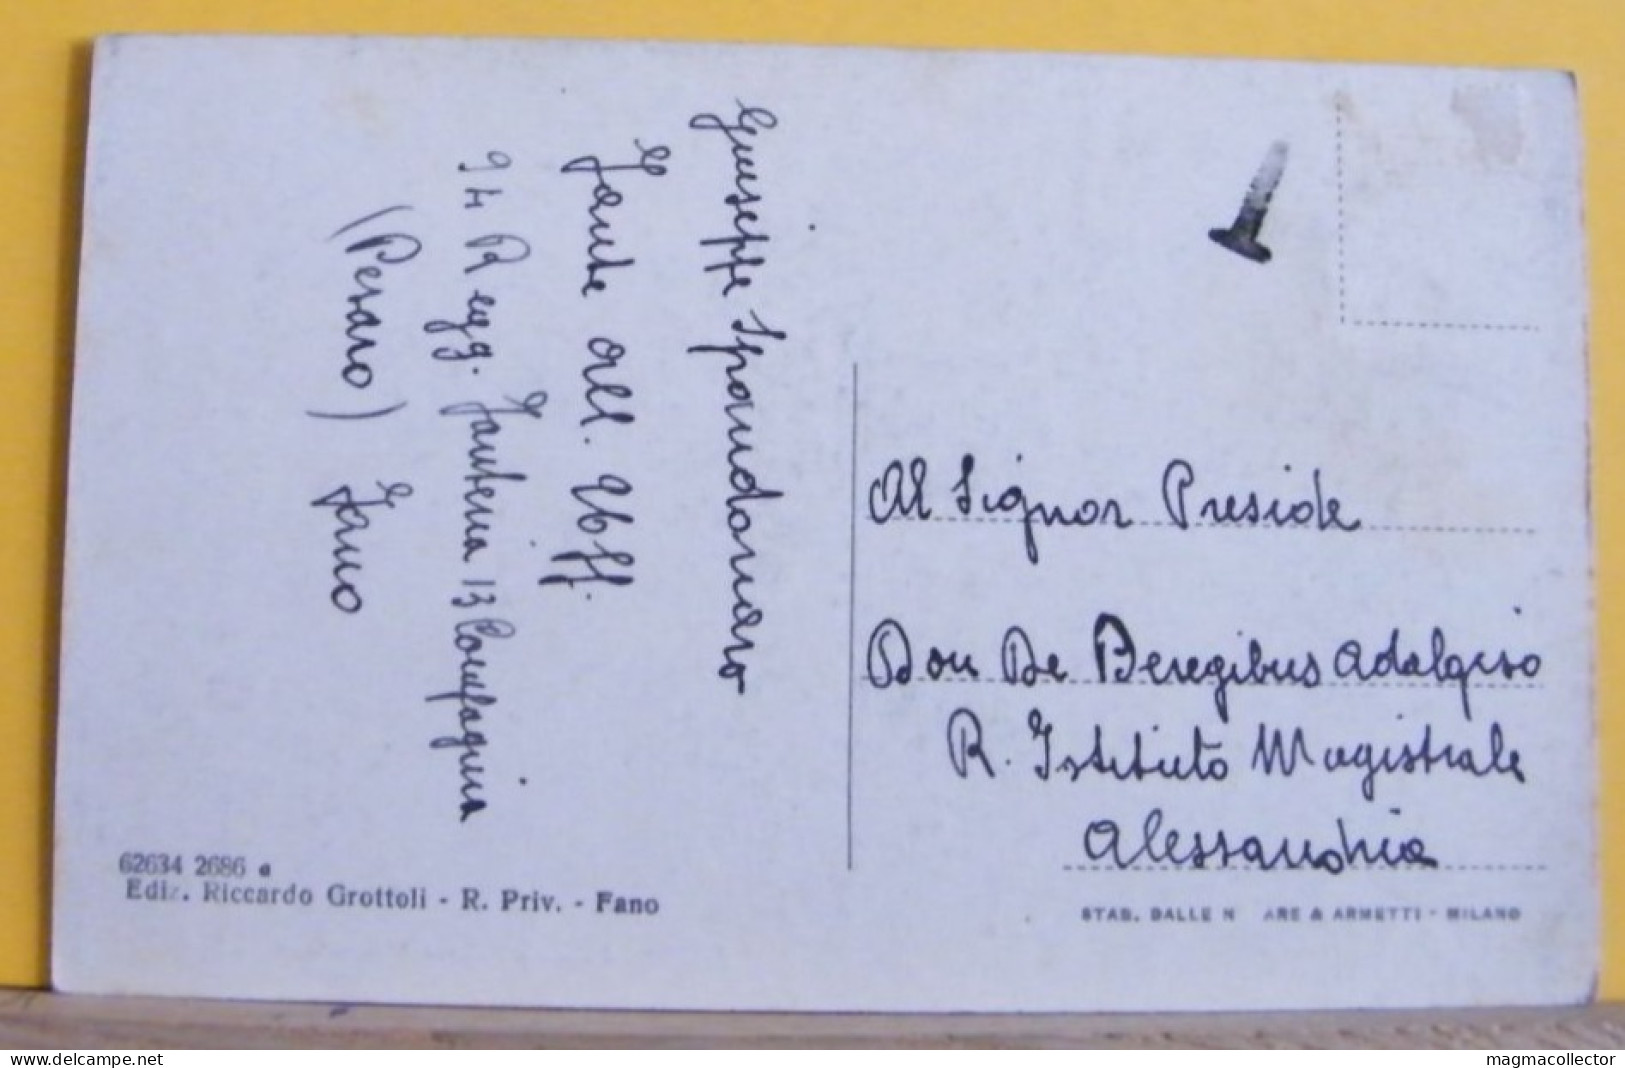 Giuseppe Spandonaro
Fante All. Uff.
94 Regg. Fanteria 13 Compagnia
(Pesaro) Fano
62634 2686 a
Ediz. Riccardo Grottoli - R. Priv. - Fano
Al Signor Preside
Don De Beregibus Adalgiso
R. Istituto Magistrale
Alessandria
STAB. DALLE N ARE & ARMETTI - MILANO
www.delcampe.net
magmacollector